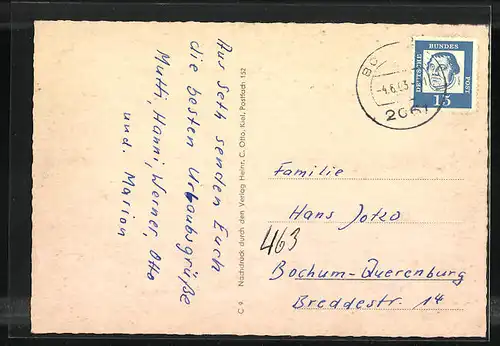 Aus Seth senden Euch
die besten Urlaubsgrüße
Mutti, Hanni, Werner, Otto
und. Marion
C 9 Nachdruck durch den Verlag Heinr. C. Otto, Kiel, Postfach 152
BO
-4.6.63-
DEUTSCHE
BUNDES
POST
15
Familie
Hans
463
Bochum-Querenburg
Breddestr. 14